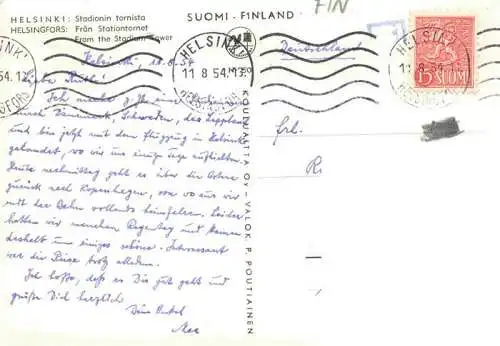 HELSINKI: Stadionin tornista
HELSINGFORS: Från Stationtornet
From the Stadium Tower
SUOMI - FINLAND
FIN
HELSINKI
11.8.54.13
HELSINGFORS
HELSINKI
11.8.54
15 SUOMI
54.12
Helsinki, 10.8.54
Liebe
Deutschland
Ich mache
durch Dänemark, Schweden, das Lappland
und bin jetzt mit dem Flugzeug in Helsinki
gelandet, wo wir uns einige Tage aufhalten.
Heute nachmittag geht es über die Ostsee
zurück nach Kopenhagen, von wo aus wir
mit der Bahn vollends heimfahren. Leider
hatten wir manchen Regentag und kamen
deshalb um einiges schöne. Interessant
war die Reise trotz alledem.
Ich hoffe, daß es Dir gut geht und
grüße Dich herzlich
Dein Onkel
Max
Frl.
R
KUVAUKSET
OY - VALOK. P. POUTIAINEN